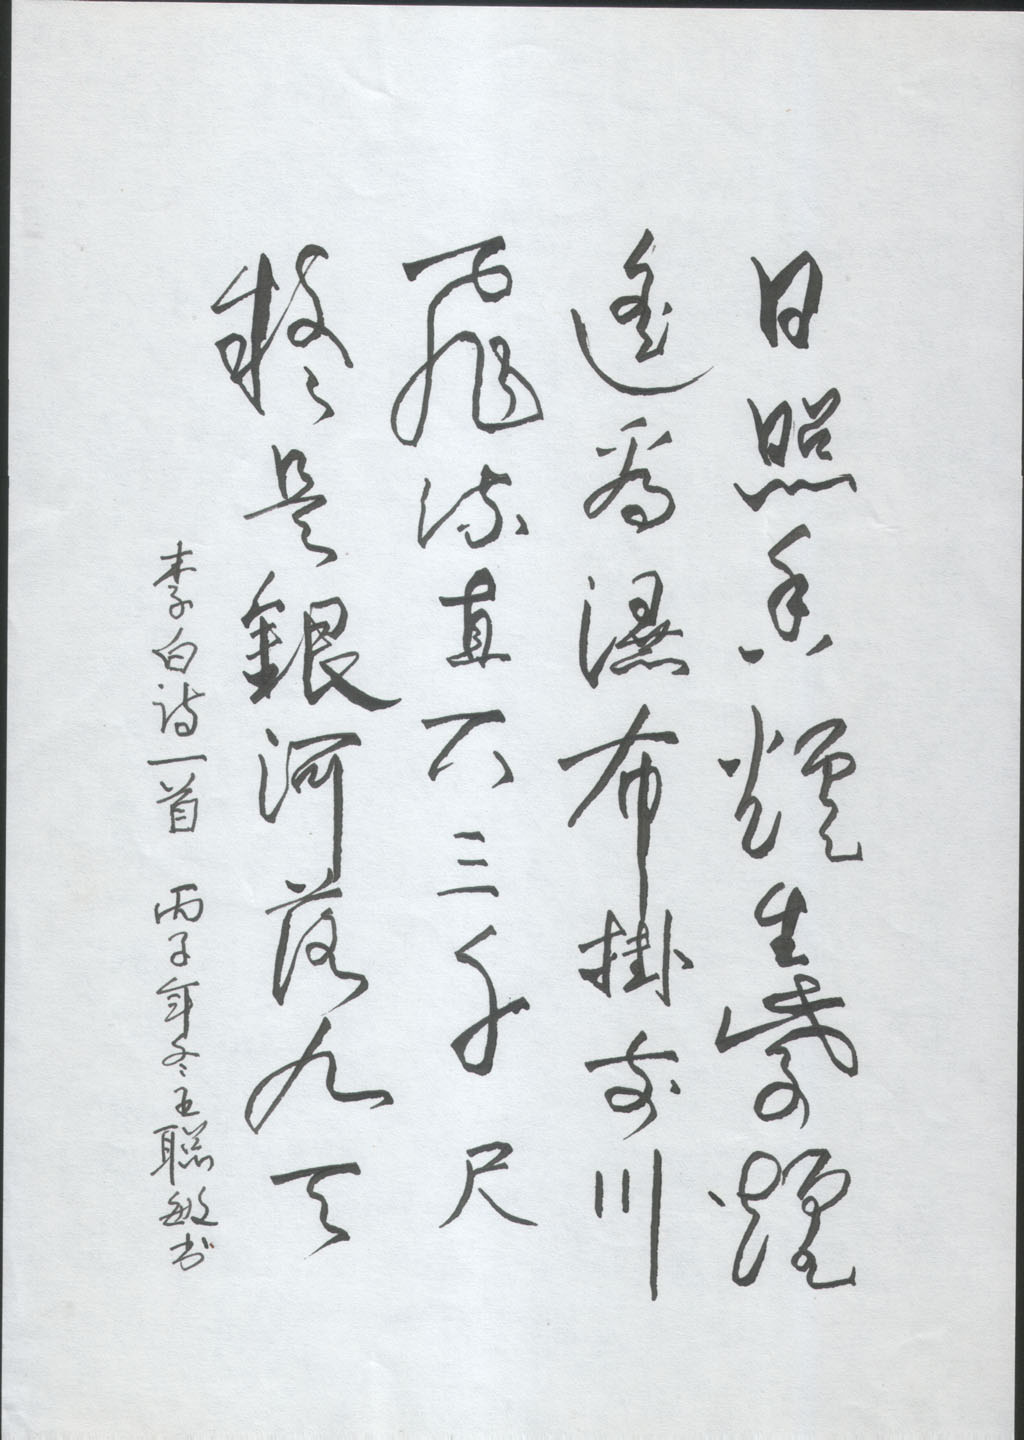 日照香爐生紫煙
遙看瀑布掛前川
飛流直下三千尺
疑是銀河落九天
李白诗一首 丙子年冬王聪敏书